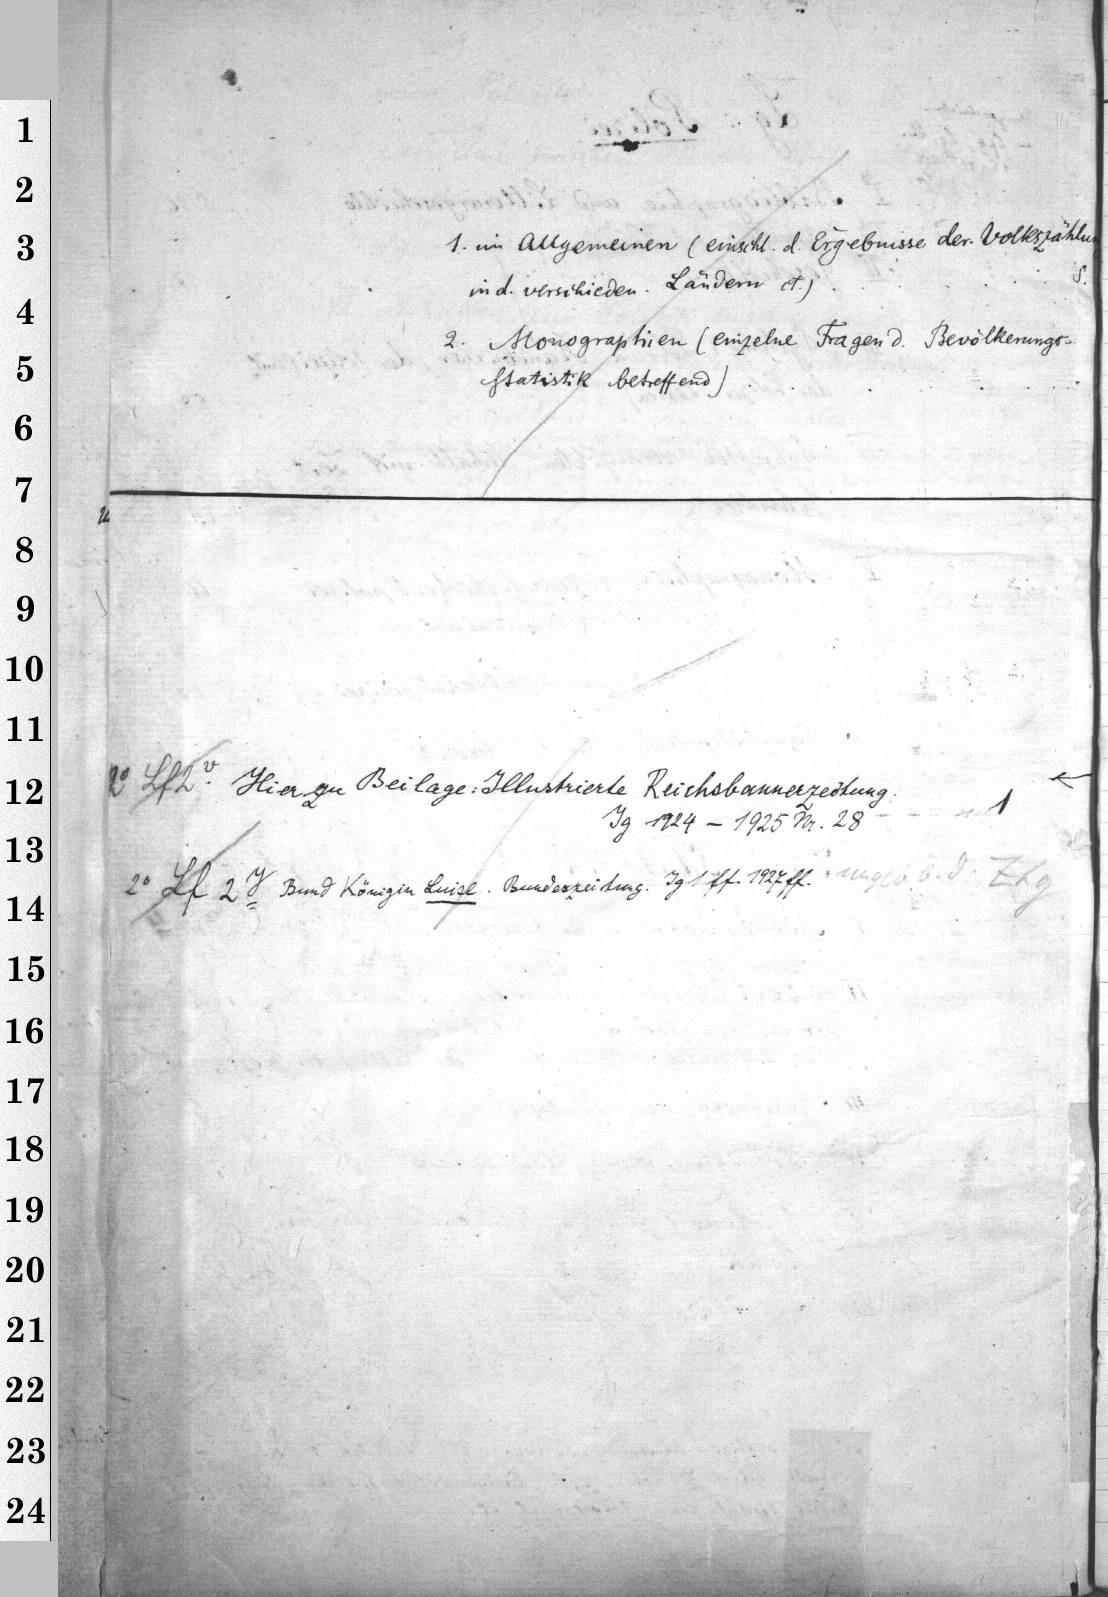 1
2
3
4
5
6
7
8
9
10
11
12
13
14
15
16
17
18
19
20
21
22
23
24
1. im Allgemeinen (einschl. d. Ergebnisse der Volkszählun
in d. verschieden. Ländern et.) . . . . . S.
2. Monographien (einzelne Fragen d. Bevölkerungs-
statistik betreffend) . . . . .
2° Lf 2 v Hierzu Beilage: Illustrierte Reichsbannerzeitung. ←
Jg 1924 – 1925 Nr. 28 1
2° Lf 2 y Bund Königin Luise. Bundeszeitung. Jg 1 ff. 1927 ff. ungeb. b. d. Ztg